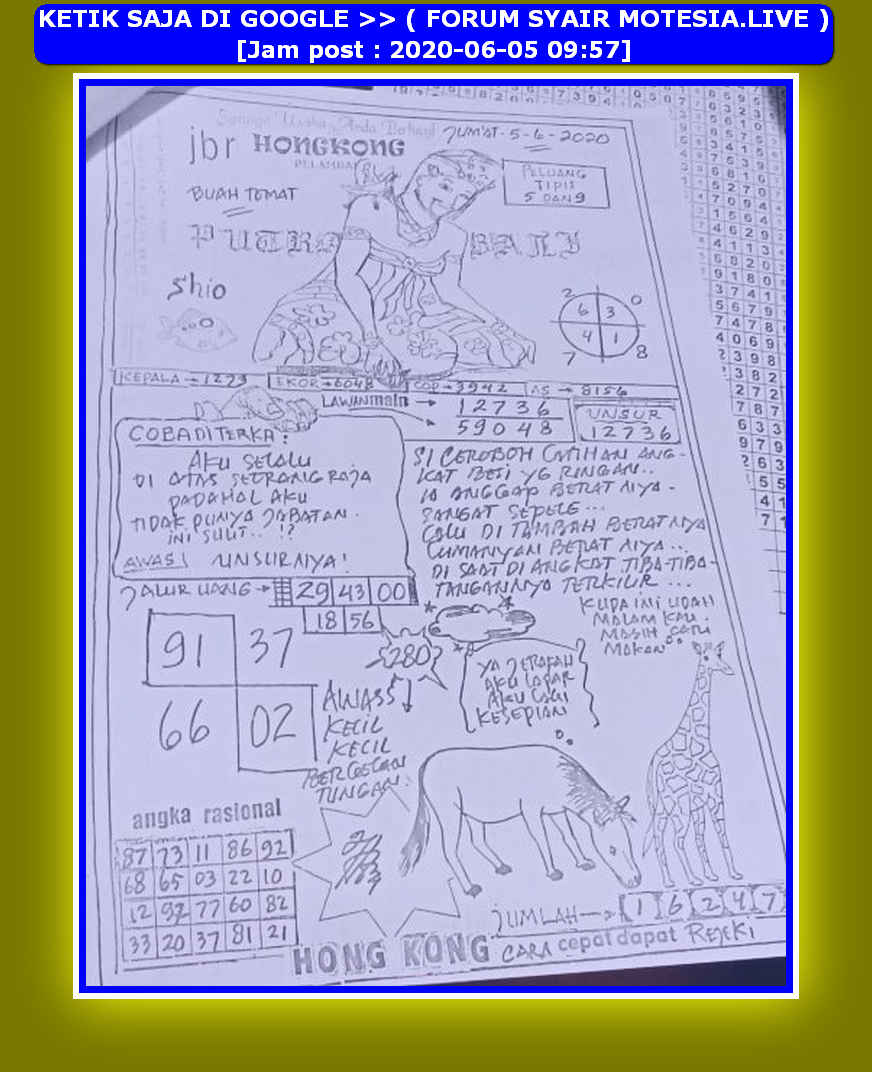 KETIK SAJA DI GOOGLE >> ( FORUM SYAIR MOTESIA.LIVE )
[Jam post : 2020-06-05 09:57]
Semoga Usaha Anda Berhasil
JUM'AT - 5 - 6 - 2020
jbr HONGKONG
BUAH TOMAT
PELUANG
TIPIS
5 DAN 9
PUTRA BALI
Shio
2 0
6 3
4 1
7 8
KEPALA → 1273
EKOR → 6048
COP → 3942
AS → 8156
LAWAN main → 12736
59048
UNSUR
12736
COBA DITERKA :
AKU SELALU
DI ATAS SEORANG RAJA
PADAHAL AKU
TIDAK PUNYA JABATAN.
INI SULIT.. !?
AWAS! UNSURNYA!
SI CEROBOH LATIHAN ANG-
KAT BESI YG RINGAN..
IA ANGGAP BERATNYA -
SANGAT SEPELE...
LALU DI TAMBAH BERATNYA
LUMANYAN BERATNYA...
DI SAAT DI ANGKAT TIBA-TIBA-
TANGANNYA TERKILIR ...
JALUR UANG → 29 43 00
18 56
91 37
66 02
5280?
AWASS
KECIL
KECIL
BERGELAN
TUNGAN.
KUDA INI UDAH
MALAM KAU.
MASIH CARI
MAKAN
YA JERAPAH
AKU LAPAR
AKU LAGI
KESEPIAN
angka rasional
87 73 11 86 92
68 65 03 22 10
12 97 77 60 82
33 20 37 81 21
JUMLAH → 1 6 2 4 7
HONG KONG CARA cepat dapat REJEKI